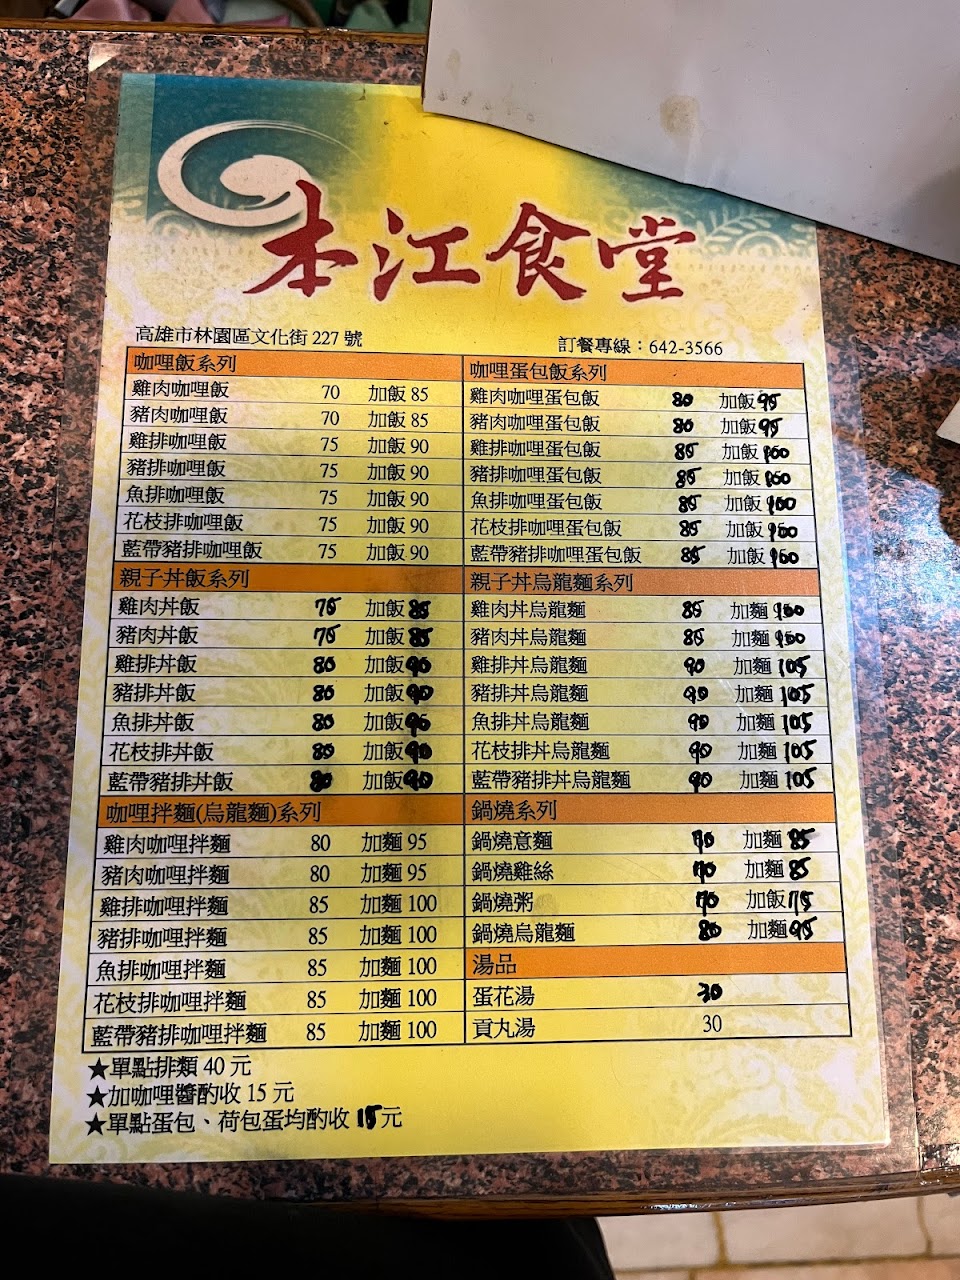 本江食堂
高雄市林園區文化街 227 號
訂餐專線：642-3566
咖哩飯系列
雞肉咖哩飯 70 加飯 85
豬肉咖哩飯 70 加飯 85
雞排咖哩飯 75 加飯 90
豬排咖哩飯 75 加飯 90
魚排咖哩飯 75 加飯 90
花枝排咖哩飯 75 加飯 90
藍帶豬排咖哩飯 75 加飯 90
親子丼飯系列
雞肉丼飯 75 加飯 85
豬肉丼飯 75 加飯 85
雞排丼飯 80 加飯 90
豬排丼飯 80 加飯 90
魚排丼飯 80 加飯 90
花枝排丼飯 80 加飯 90
藍帶豬排丼飯 80 加飯 90
咖哩拌麵(烏龍麵)系列
雞肉咖哩拌麵 80 加麵 95
豬肉咖哩拌麵 80 加麵 95
雞排咖哩拌麵 85 加麵 100
豬排咖哩拌麵 85 加麵 100
魚排咖哩拌麵 85 加麵 100
花枝排咖哩拌麵 85 加麵 100
藍帶豬排咖哩拌麵 85 加麵 100
咖哩蛋包飯系列
雞肉咖哩蛋包飯 80 加飯 95
豬肉咖哩蛋包飯 80 加飯 95
雞排咖哩蛋包飯 85 加飯 100
豬排咖哩蛋包飯 85 加飯 100
魚排咖哩蛋包飯 85 加飯 100
花枝排咖哩蛋包飯 85 加飯 100
藍帶豬排咖哩蛋包飯 85 加飯 100
親子丼烏龍麵系列
雞肉丼烏龍麵 85 加麵 100
豬肉丼烏龍麵 85 加麵 100
雞排丼烏龍麵 90 加麵 105
豬排丼烏龍麵 90 加麵 105
魚排丼烏龍麵 90 加麵 105
花枝排丼烏龍麵 90 加麵 105
藍帶豬排丼烏龍麵 90 加麵 105
鍋燒系列
鍋燒意麵 70 加麵 85
鍋燒雞絲 70 加麵 85
鍋燒粥 70 加飯 75
鍋燒烏龍麵 80 加麵 95
湯品
蛋花湯 30
貢丸湯 30
★單點排類 40 元
★加咖哩醬酌收 15 元
★單點蛋包、荷包蛋均酌收 15 元